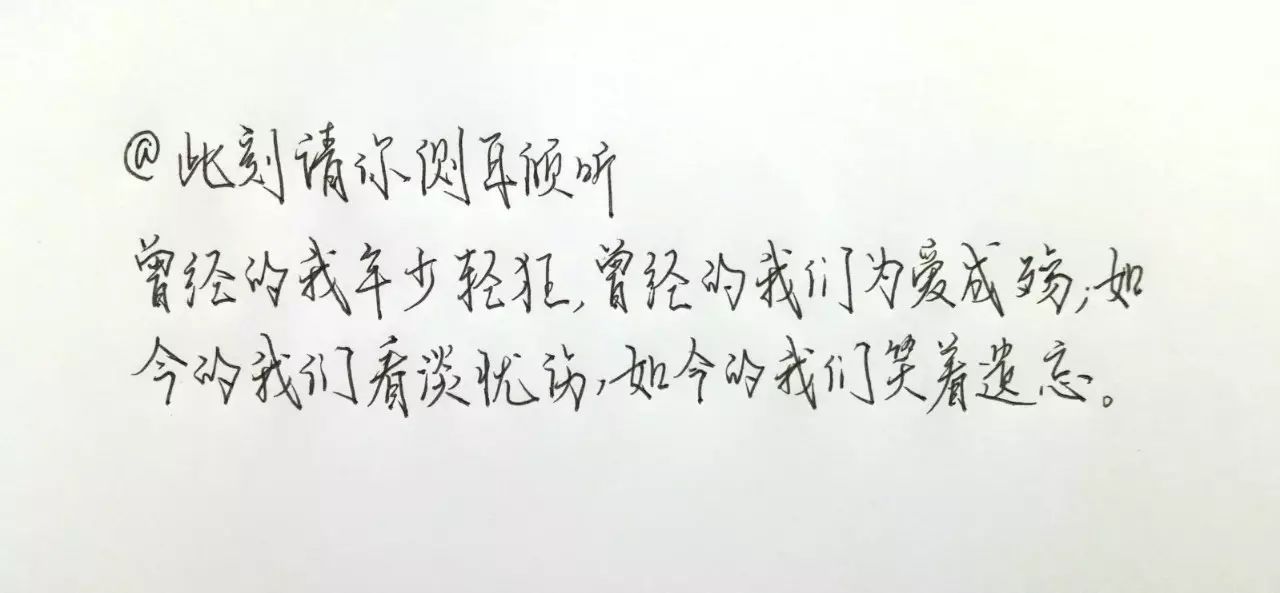 @此刻请你侧耳倾听
曾经的我年少轻狂,曾经的我们为爱成殇;如
今的我们看淡忧伤,如今的我们笑着遗忘。